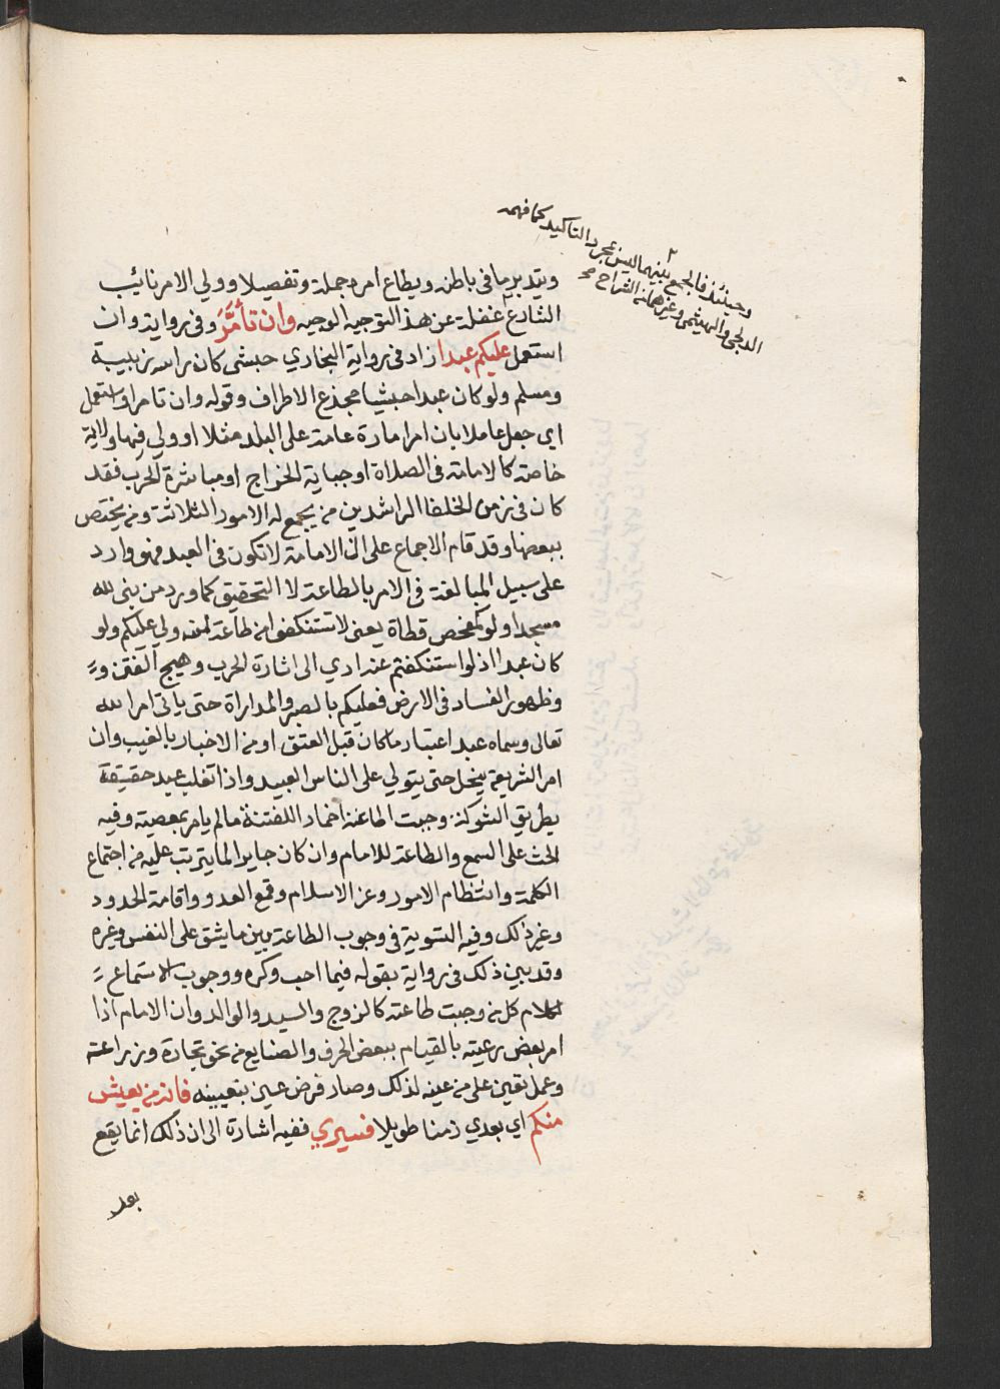 وحينئذ فالجمع بينهما ليس لمجرد التاكيد كما فهمه
الدلجي والهيثمي وغيرهما من الشراح صح
ويتدبر ما في باطنه ويطاع امره جملة وتفصيلا وولي الامر نائب
الشارع غفلة عن هذا التوجيه الوجيه وان تأمَّرَ وفي رواية وان
استعمل عليكم عبد زاد في رواية البخاري حبشي كان راسه زبيبة
ومسلم ولو كان عبدا حبشيا مجدع الاطراف وقوله وان تامر او استعمل
اي جعل عاملا بان امر امارة عامة على البلد مثلا او ولي فيها ولاية
خاصة كالامامة في الصلاة او جباية الخراج او مباشرة الحرب فقد
كان في زمن الخلفا الراشدين من يجمع له الامور الثلاثة ومن يختص
ببعضها وقد قام الاجماع على ان الامامة لا تكون في العبد فهو وارد
على سبيل المبالغة في الامر بالطاعة لا التحقيق كما ورد من بنى لله
مسجدا ولو كمفحص قطاة يعني لا تستنكفوا من طاعة من ولي عليكم ولو
كان عبدا اذ لو استنكفتم عنه ادي الى اثارة الحرب وهيج الفتن
وظهور الفساد في الارض فعليكم بالصبر والمداراة حتى ياتي امر الله
تعالى وسماه عبد اعتبار ما كان قبل العتق او من الاخبار بالغيب وان
امر الشريعة يختل حتى يتولي على الناس العبيد واذا تغلب عبد حقيقة
بطريق الشوكة وجبت اطاعته اخمادا للفتنة ما لم يامر بمعصيته وفيه
الحث على السمع والطاعة للامام وان كان جايرا لما يترتب عليه من اجتماع
الكلمة وانتظام الامور وعز الاسلام وقمع العدو واقامة الحدود
وغير ذلك وفيه التسوية في وجوب الطاعة بين ما يشق على النفس وغيره
وقد بين ذلك في رواية بقوله فيما احب وكره ووجوب الاستماع
لكلام كل من وجبت طاعته كالزوج والسيد والوالد وان الامام اذا
امر بعض رعيته بالقيام ببعض الحرف والصنايع من نحو تجارة وزراعة
وعمل تعين على من عينه لذلك وصار فرض عين بتعيينه فانه من يعيش
منكم اي بعدي زمنا طويلا فسيري ففيه اشارة الى ان ذلك انما يقع
بعد